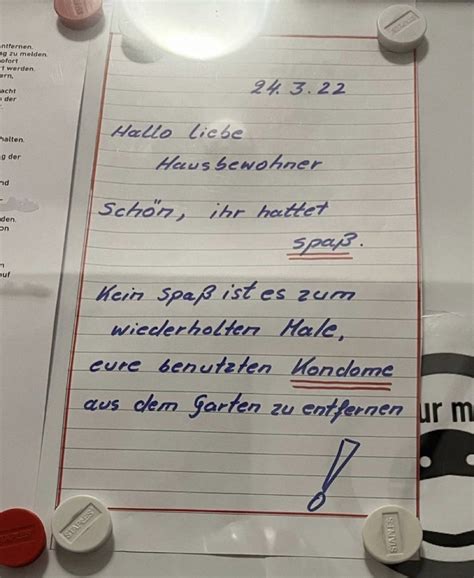 ntfernen.
g zu melden.
ofort
t werden.
ern,
acht
der
halten.
g der
nd
den.
on
n
uf
24.3.22
Hallo liebe
Hausbewohner
Schön, ihr hattet
spaß.
Kein spaß ist es zum
wiederholten Male,
eure benutzten Kondome
aus dem Garten zu entfernen
!
ur m
STAPLES
STAPLES
STAPLES